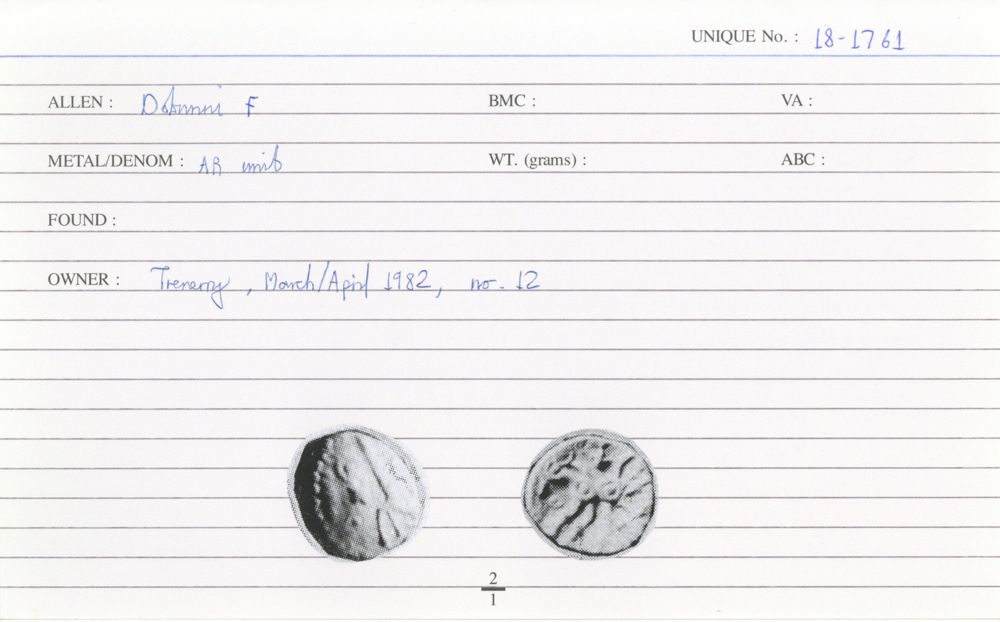 UNIQUE No. : 18-1761
ALLEN : Dobunni F BMC : VA :
METAL/DENOM : AR unit WT. (grams) : ABC :
FOUND :
OWNER : Trenerry, March/April 1982, no. 12
2
1